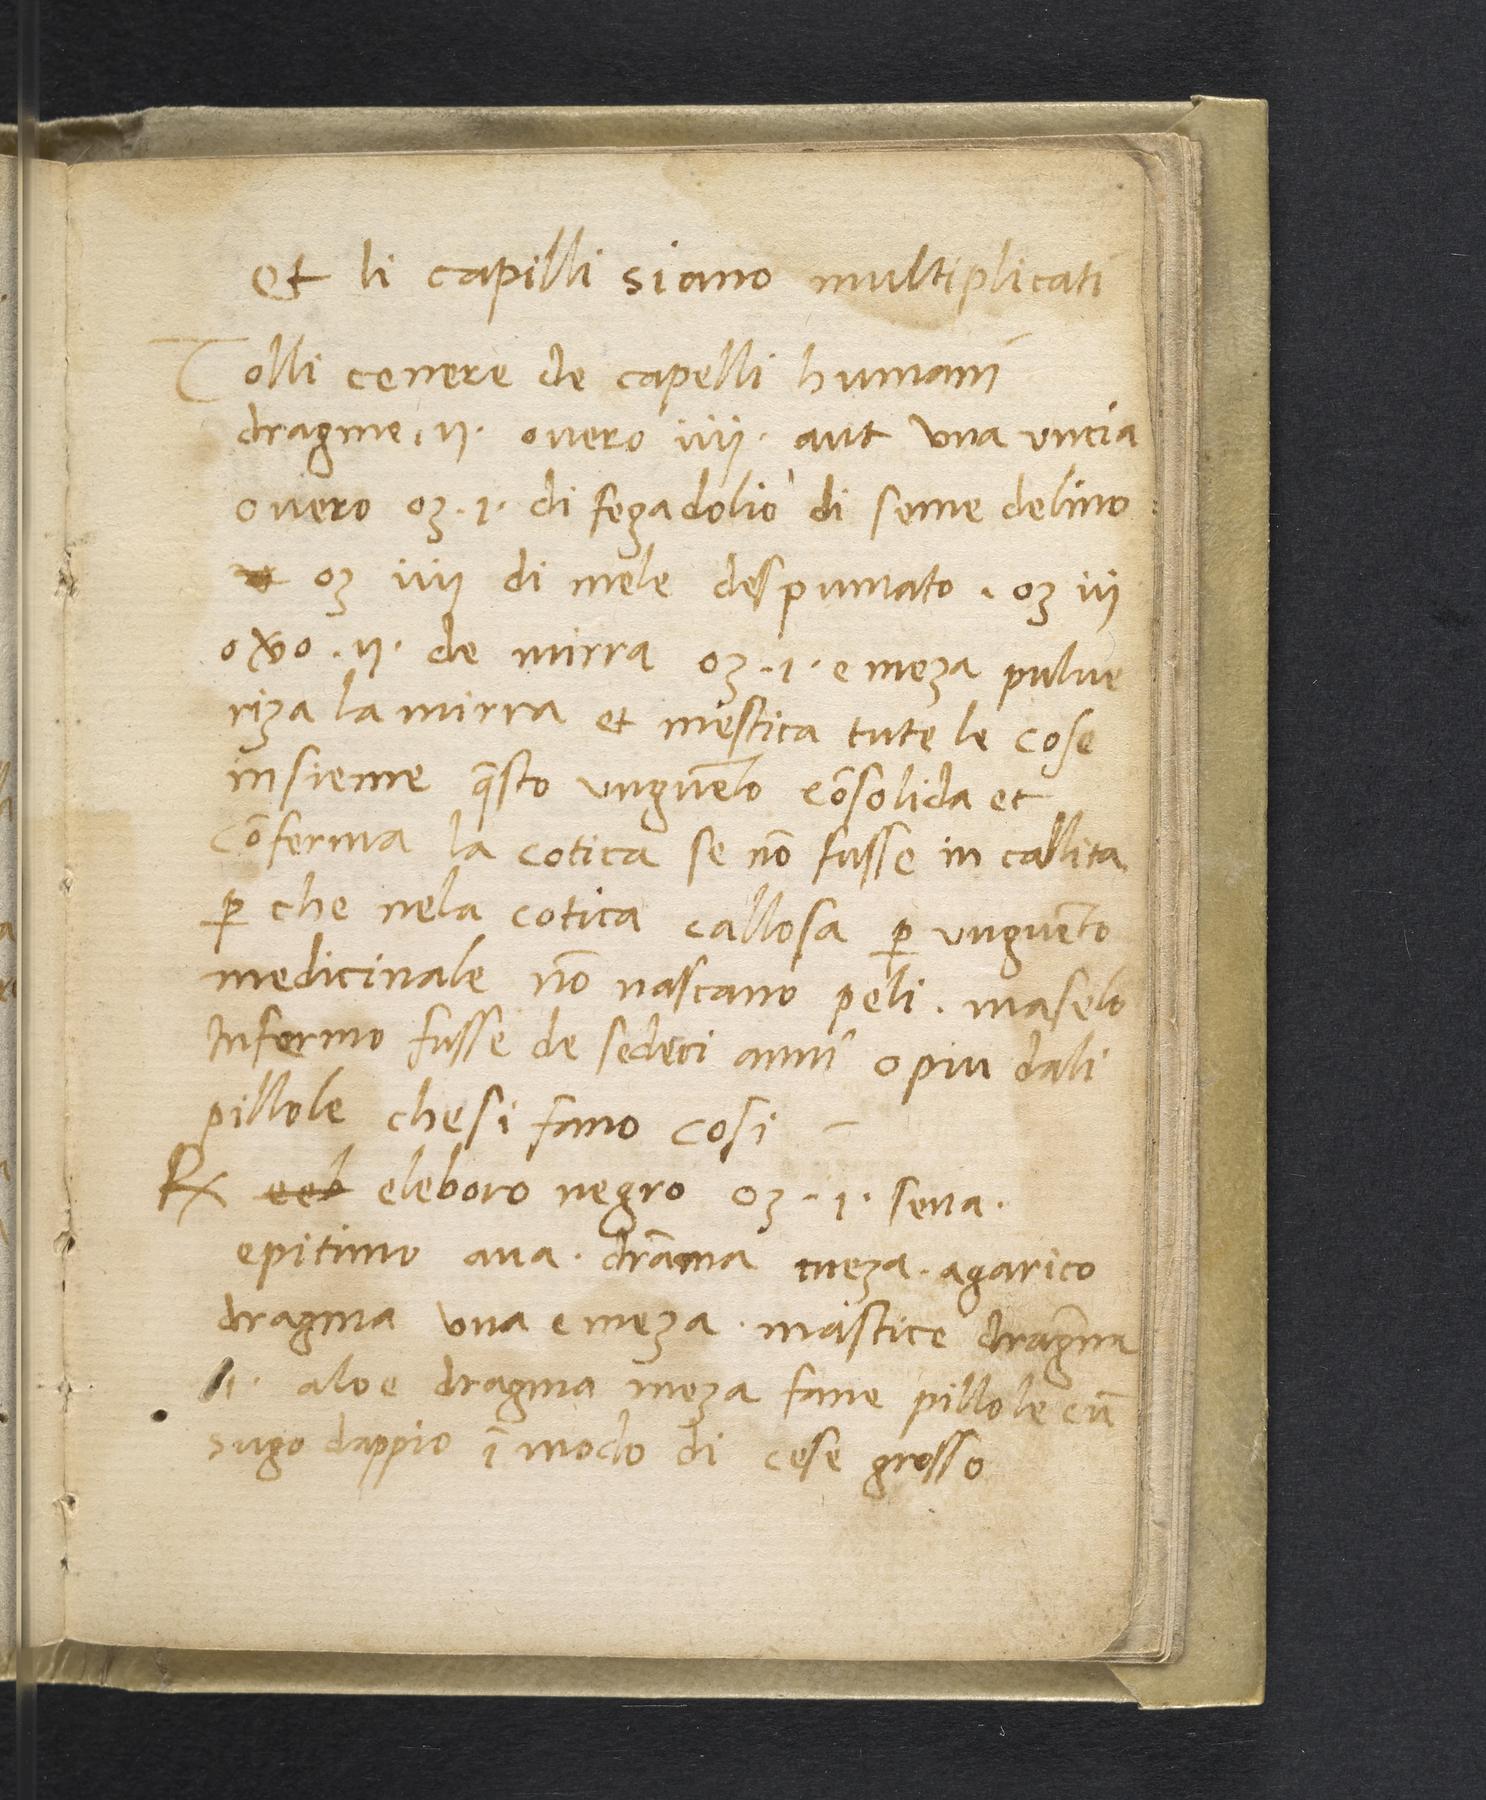 et li capilli siano multiplicati
Tolli cenere de capelli humani
dragme .ij. ouero iiij. aut una uncia
ouero oz .i. di fegadolio di seme delino
oz iiij di mele despumato . oz iij
o xo .ij. de mirra oz .i. e meza pulue
riza la mirra et mestica tute le cose
insieme q̄sto unguēto cōsolida et
cōferma la cotica se nō fusse in callita
ꝑ che nela cotica callosa ꝑ unguēto
medicinale nō nascano peli . maselo
Infermo fusse de sedeci anni o piu dali
pillole che si fano cosi –
Rx eeb eleboro negro oz .i. sena .
epitimo ana . drāma meza . agarico
dragma una e meza . mastice dragma
ii . aloe dragma meza fane pillole cū
sugo dappio ī modo di cese grosso